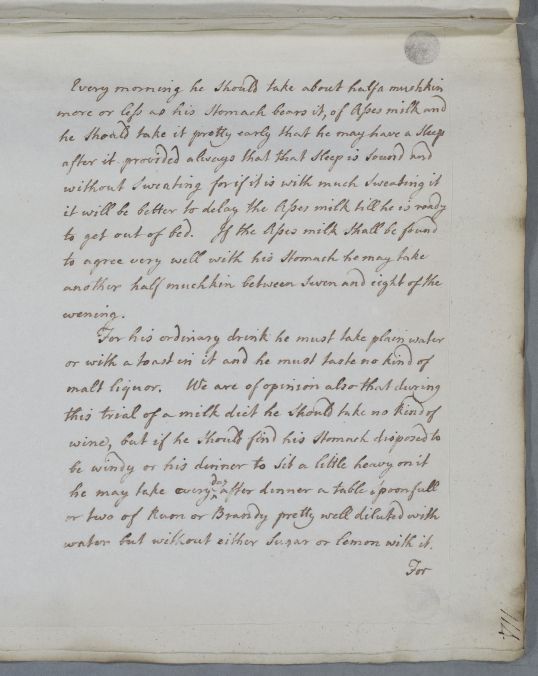 Every morning he should take about half a muchkin
more or less as his Stomach bears it, of Asses milk and
he should take it pretty early that he may have a Sleep
after it provided always that that Sleep is Sound and
without Sweating for if it is with much Sweating it
it will be better to delay the Asses milk till he is ready
to get out of bed. If the Asses milk shall be found
to agree very well with his Stomach he may take
another half muchkin between Seven and eight of the
evening.
For his ordinary drink he must take plain water
or with a toast in it and he must taste no kind of
malt liquor. We are of opinion also that during
this trial of a milk diet he should take no kind of
wine, but if he should find his Stomach disposed to
be windy or his dinner to Sit a little heavy on it
he may take every day after dinner a table Spoonfull
or two of Rum or Brandy pretty well diluted with
water but without either Sugar or lemon with it.
For